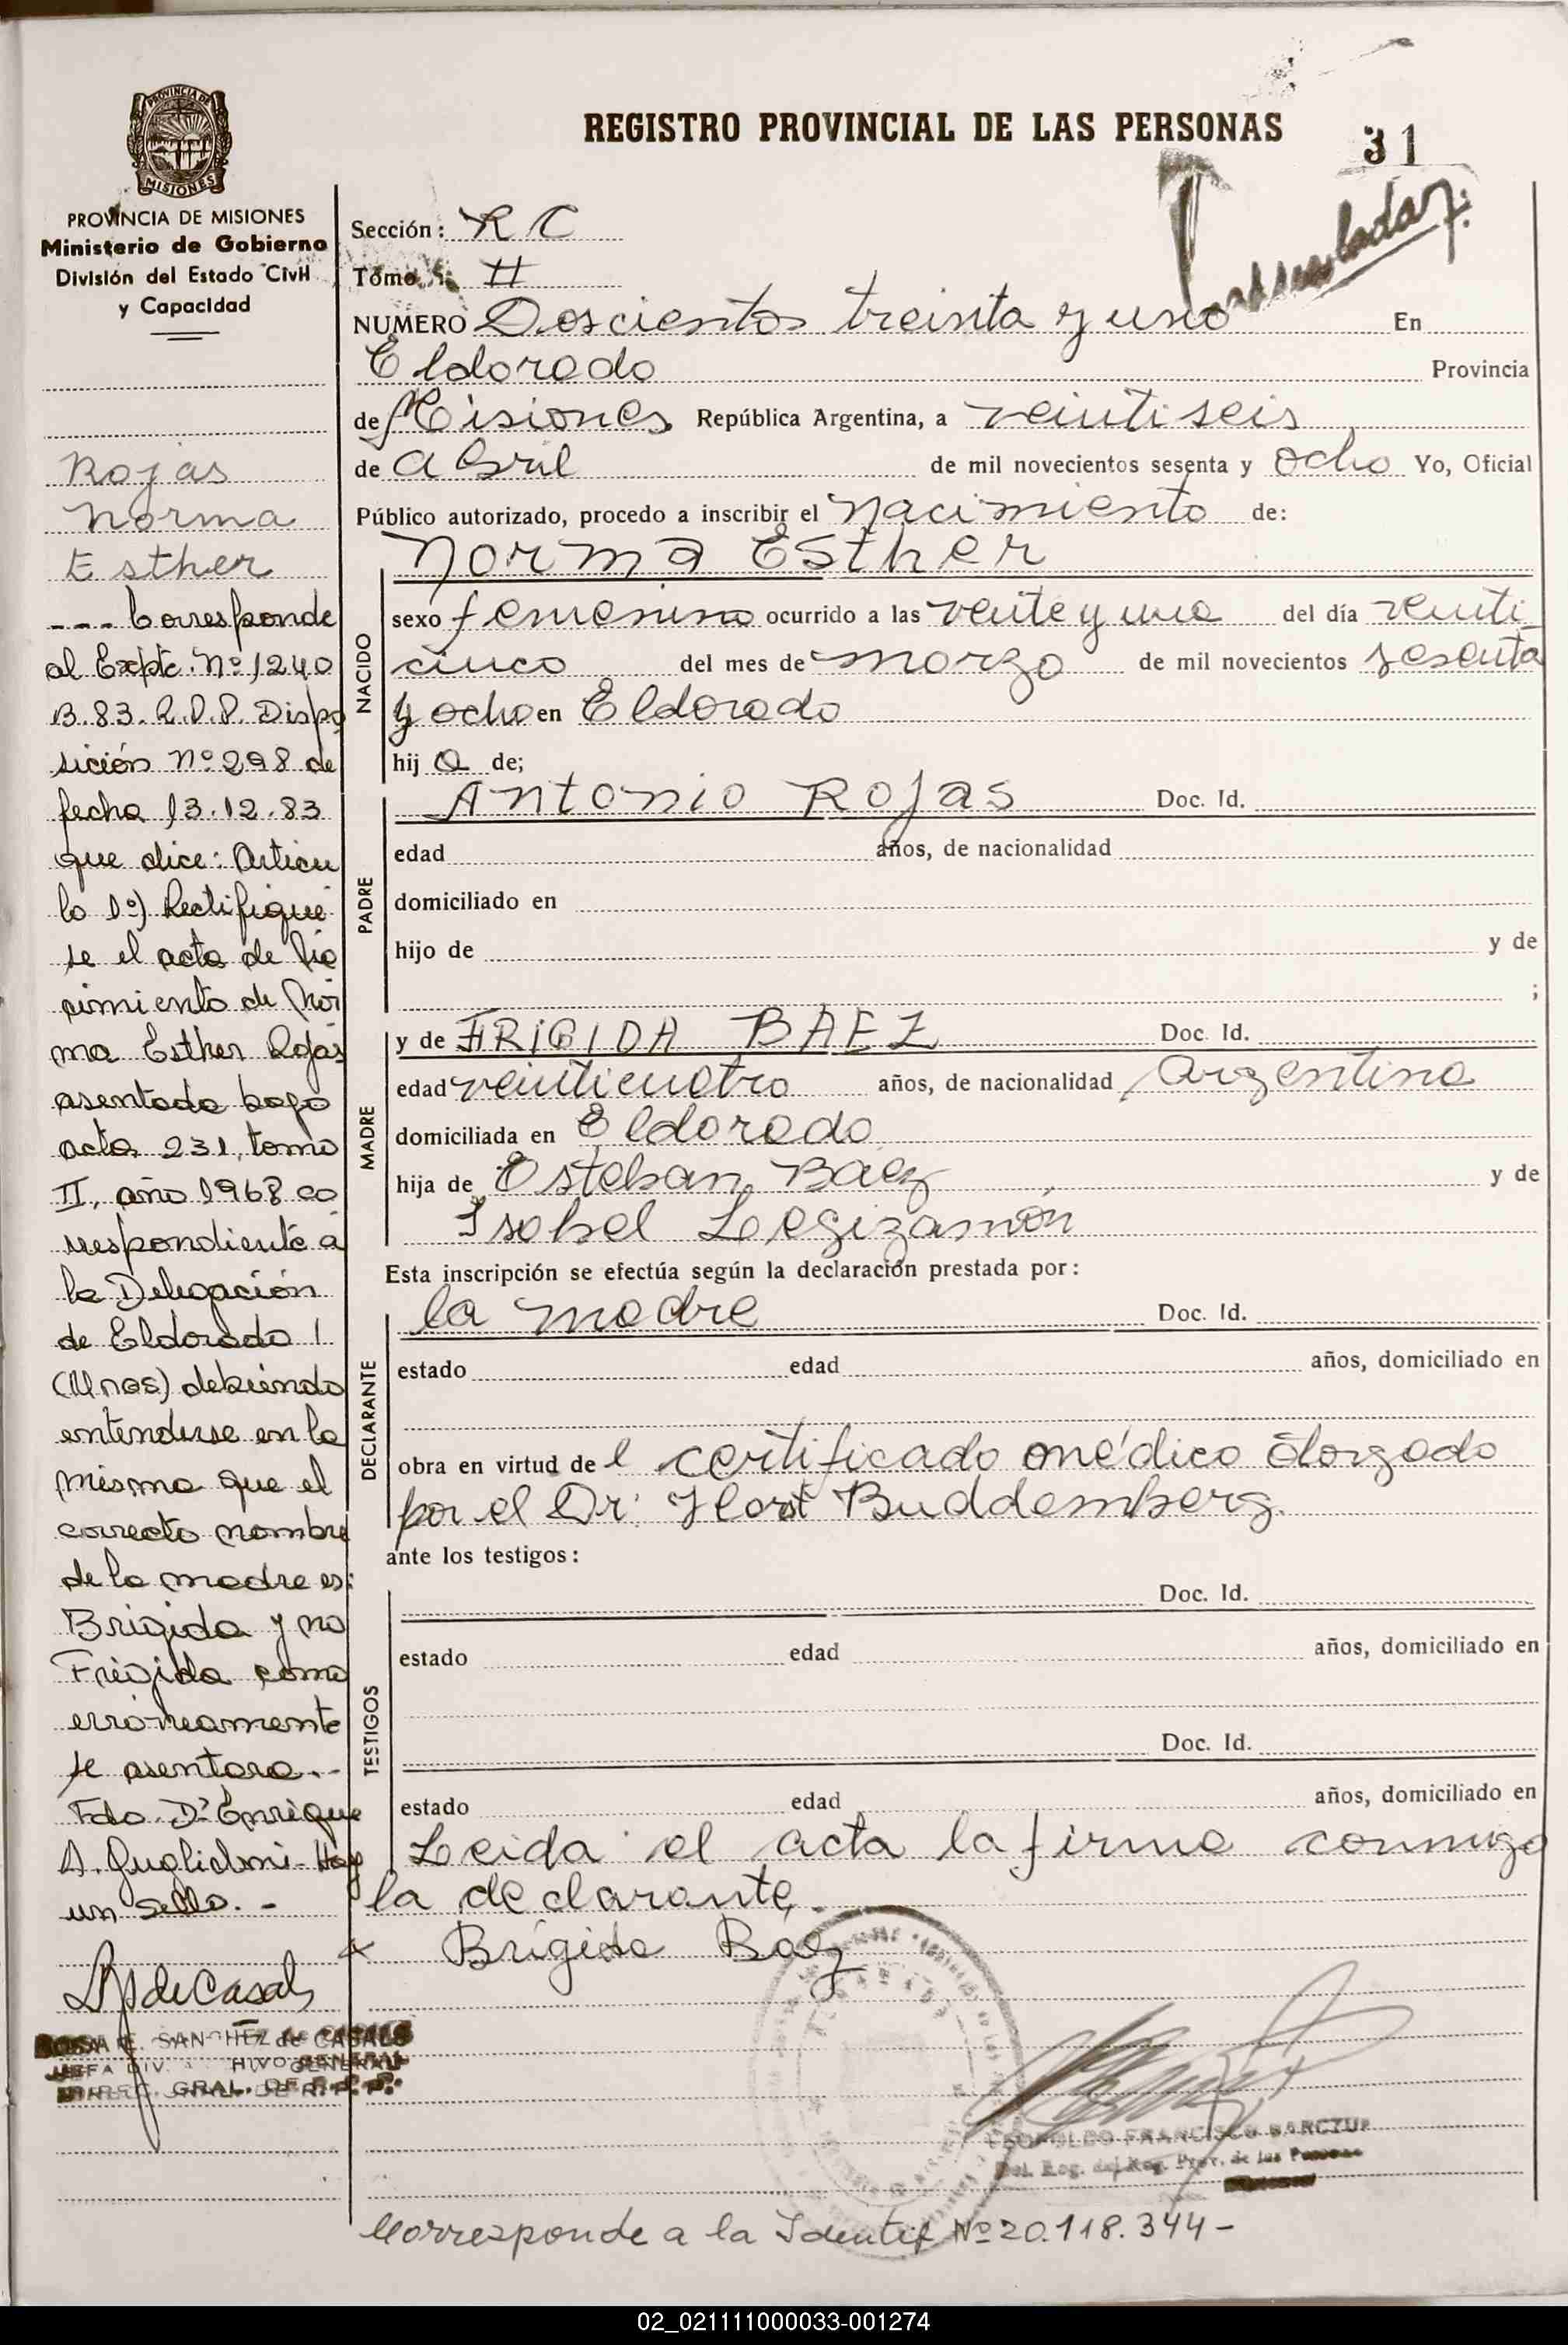 REGISTRO PROVINCIAL DE LAS PERSONAS
31
PROVINCIA DE
MISIONES
PROVINCIA DE MISIONES
Ministerio de Gobierno
División del Estado Civil
y Capacidad
Rojas
Norma
Esther
--- Corresponde
al Expte. Nº 1240
B.83.R.P.P. Dispo
sición Nº 298 de
fecha 13.12.83
que dice: Articu
lo 1º) Rectifique
se el acta de Na
cimiento de Nor
ma Esther Rojas
asentada bajo
acta 231, tomo
II, año 1968 co
rrespondiente a
la Delegación
de Eldorado 1
(Mnes) debiendo
entenderse en la
misma que el
correcto nombre
de la madre es:
Brigida y no
Frigida como
erróneamente
se asentara.-
Fdo. Dr Enrique
A. Gugliclmi-Hay
un sello.-
ROSA E. SANCHEZ de CASALS
JEFA DIV. ARCHIVO GENERAL
DIREC. GRAL. DE R.P.P.
Sección: R C
Tomo: II
NUMERO Doscientos treinta y uno En
Eldorado Provincia
de Misiones República Argentina, a veintiseis
de abril de mil novecientos sesenta y ocho Yo, Oficial
Público autorizado, procedo a inscribir el Nacimiento de:
NACIDO
Norma Esther
sexo femenino ocurrido a las veinte y una del día veinti
cinco del mes de marzo de mil novecientos sesenta
y ocho en Eldorado
hij a de;
PADRE
Antonio Rojas Doc. Id.
edad años, de nacionalidad
domiciliado en
hijo de y de
;
MADRE
y de FRIGIDA BAEZ Doc. Id.
edad veinticuatro años, de nacionalidad Argentina
domiciliada en Eldorado
hija de Esteban Baez y de
Isabel Legizamón
Esta inscripción se efectúa según la declaración prestada por:
DECLARANTE
la madre Doc. Id.
estado edad años, domiciliado en
obra en virtud de l certificado médico otorgado
por el Dr. Horst Buddemberg.
ante los testigos:
TESTIGOS
Doc. Id.
estado edad años, domiciliado en
Doc. Id.
estado edad años, domiciliado en
Leida el acta la firma conmigo
la declarante.
x Brigida Baéz
LEOPOLDO FRANCISCO BARCZUK
Del. Reg. del Reg. Prov. de las Personas
Corresponde a la Identif Nº 20.118.344-
02_021111000033-001274